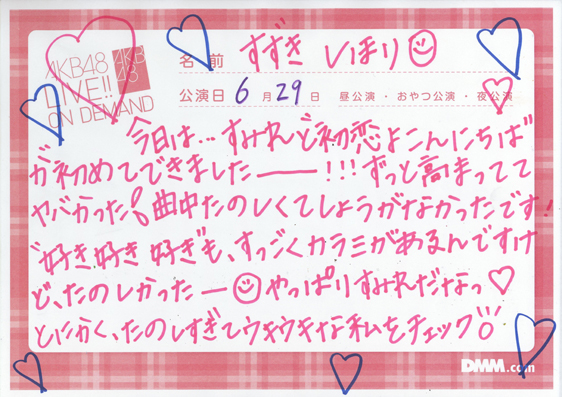 AKB48
LIVE!!
ON DEMAND
AKB
48
名前 すずき しほり
公演日 6月29日 昼公演・おやつ公演・夜公演
今日は…すみれと"初恋よこんにちは"
が初めてできましたー!!!ずっと高まってて
ヤバかった!曲中たのしくてしょうがなかったです!
"好き好き好き"も、すっごくカラミがあるんですけ
ど、たのしかったーやっぱりすみれだなっ♡
とにかく、たのしすぎてウキウキな私をチェック
DMM.com